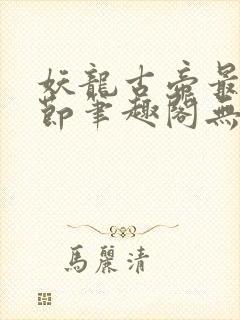 妖龍古帝最
節筆趣閣無
馬麗清